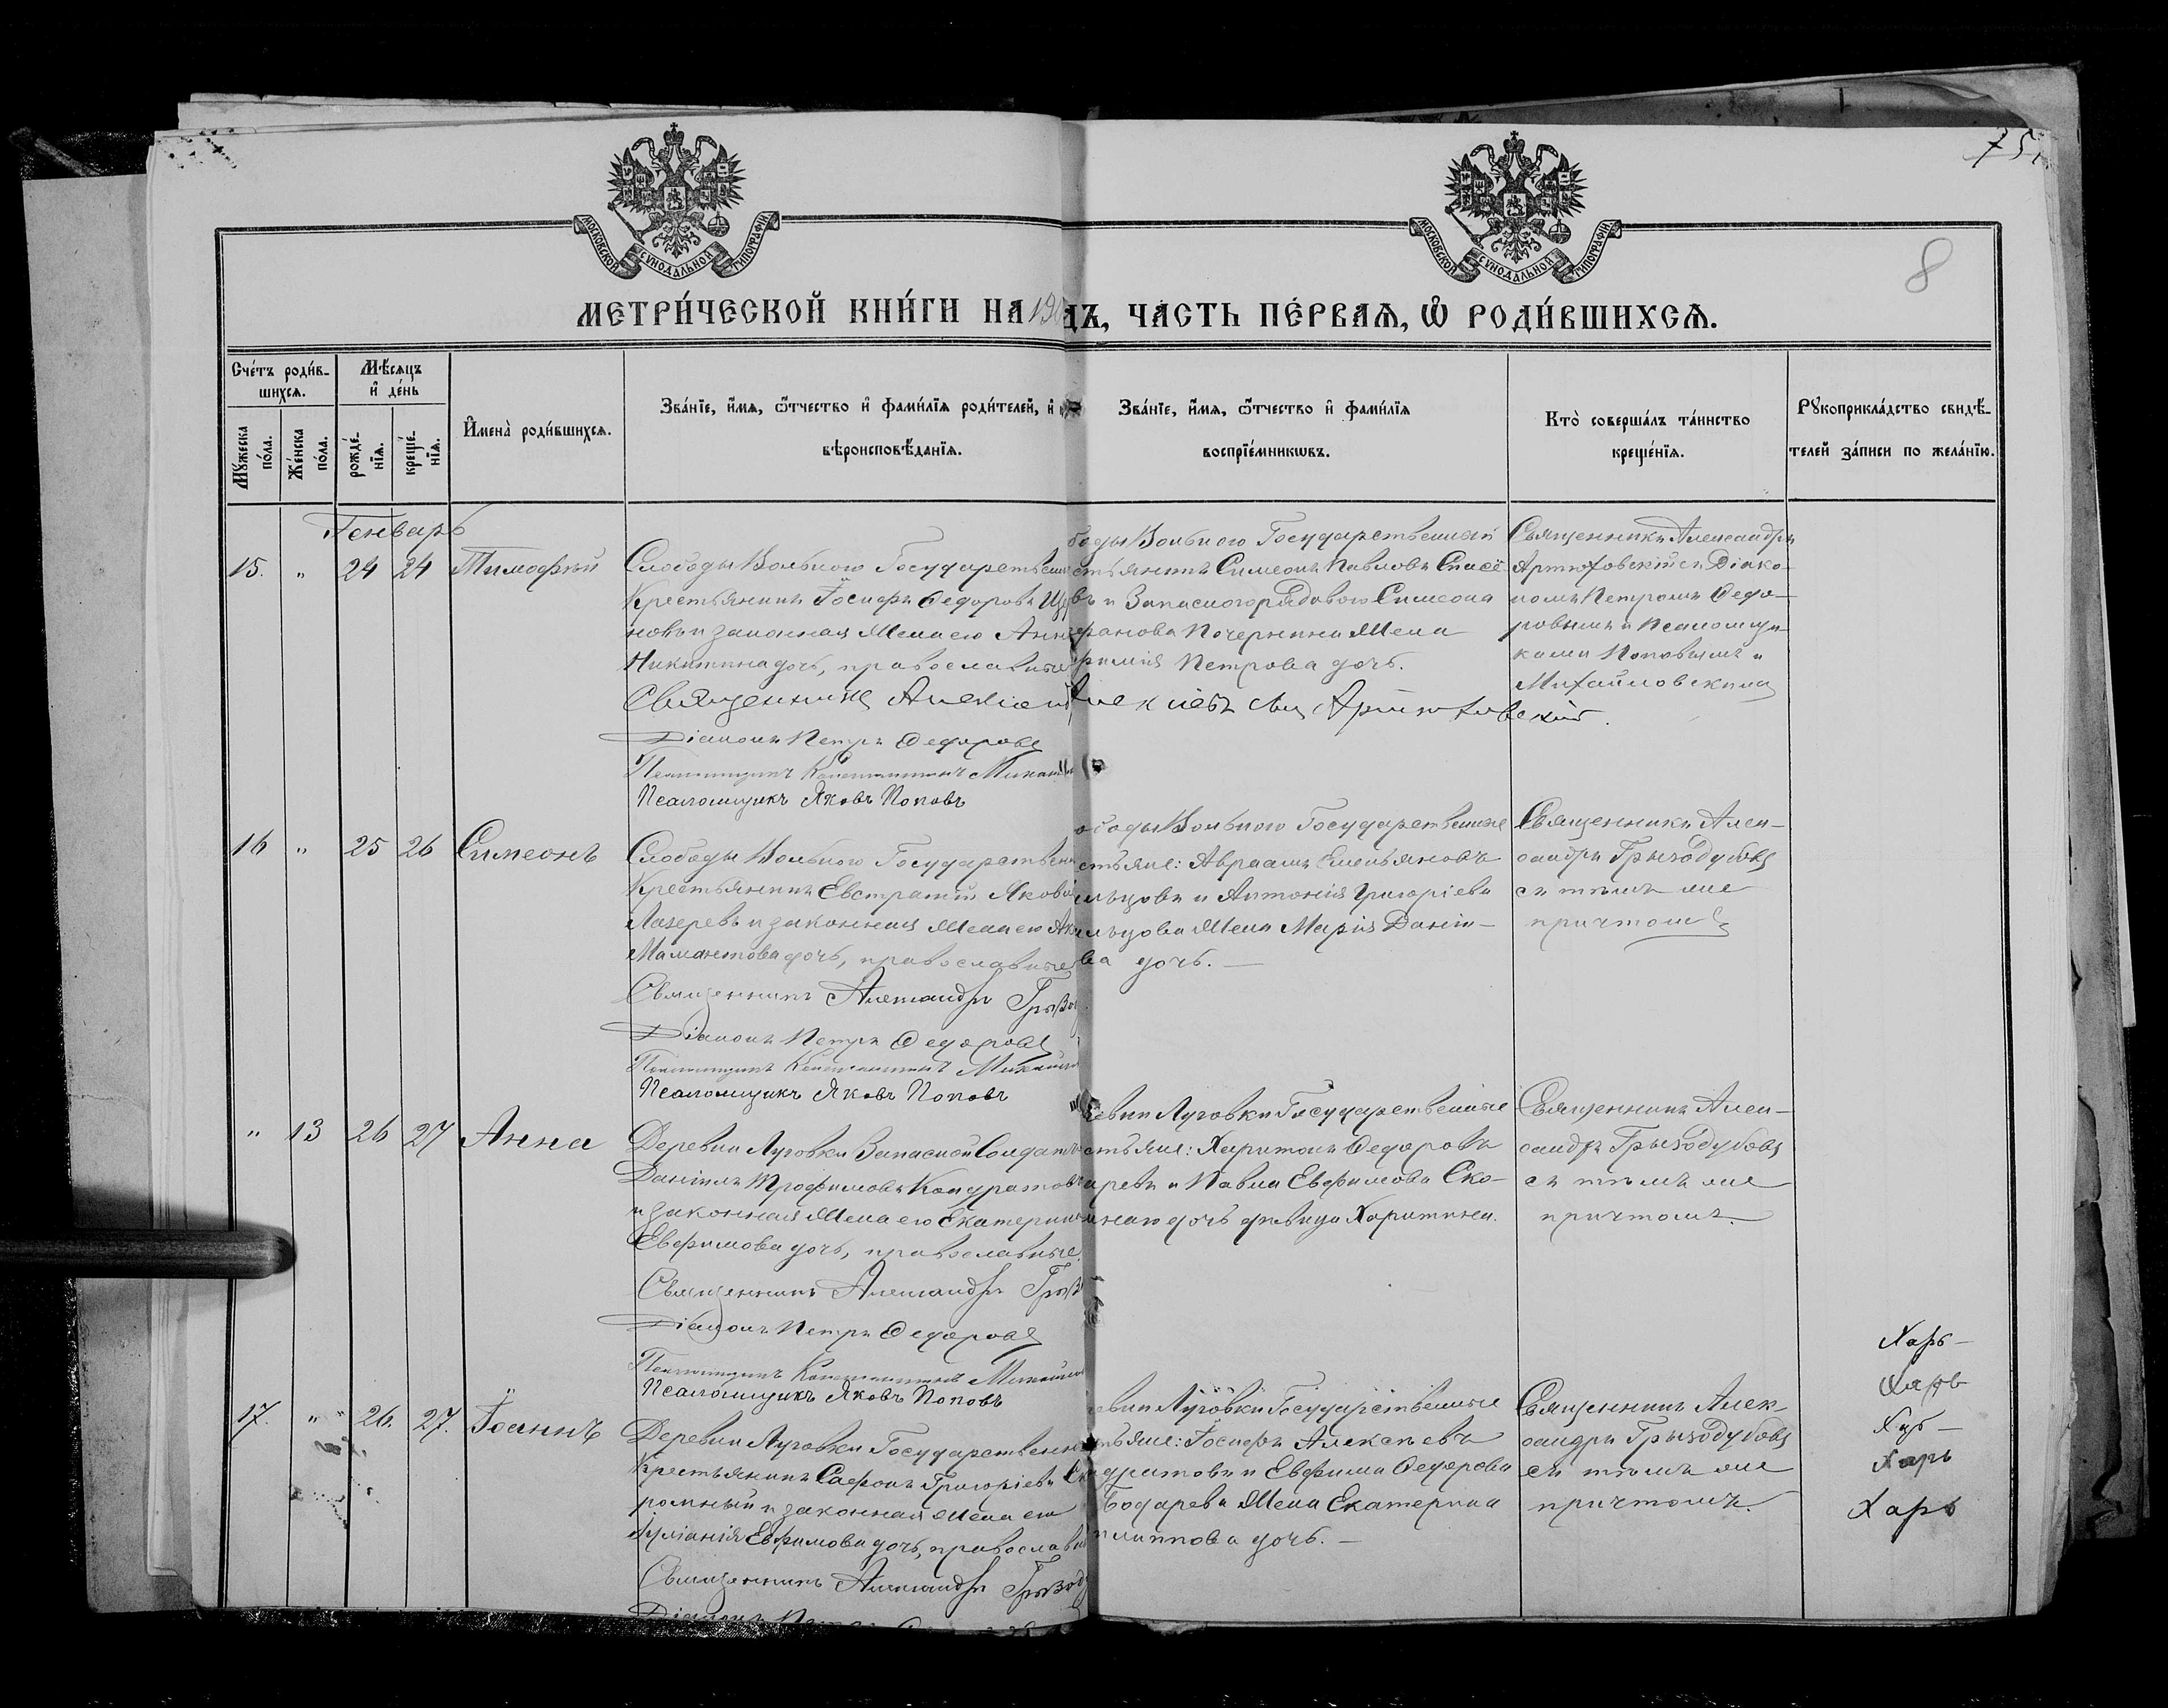 75
8
МОСКОВСКОЙ СУНОДАЛЬНОЙ ТИПОГРАФІИ
МОСКОВСКОЙ СУНОДАЛЬНОЙ ТИПОГРАФІИ
МЕТРИ́ЧЕСКОЙ КНИ́ГИ НА 190
ДЪ, ЧА́СТЬ ПЕ́РВАѦ, Ѡ҆ РОДИ́ВШИХСѦ.
Сче́тъ роди́в-
шихсѧ.
Мꙋ́жеска
по́ла.
Же́нска
по́ла.
Мѣ́сѧцъ
и҆ де́нь
рожде́-
нїѧ.
креще́-
нїѧ.
И҆мена̀ роди́вшихсѧ.
Зва́нїе, и҆́мѧ, ѻ҆́тчество и҆ фами́лїѧ роди́телей, и҆
вѣроисповѣ́данїѧ.
Зва́нїе, и҆́мѧ, ѻ҆́тчество и҆ фами́лїѧ
воспрїе́мникѡвъ.
Кто̀ соверша́лъ та́инство
креще́нїѧ.
Рꙋкоприкла́дство свидѣ́-
телей за́писи по жела́нїю.
Генварь
15. " 24 24 Тимофей
Слободы Вольного Государствен
Крестьянинъ Іосифъ Федоровъ
новъ и законная жена его Анн
Никитина дочь, православные
Священникъ Алексій
Діаконъ Петръ Федоровъ
Псаломщикъ Константинъ Михай
Псаломщикъ Яковъ Поповъ
боды Вольного Государственный
стьянинъ Симеонъ Павловъ Спасё
въ и Запасного рядового Симеона
фанова Почернина жена
фимія Петрова дочь.
Алексіевъ свящ Артюховскій.
Священникъ Александръ
Артюховскій съ Діако-
номъ Петромъ Федо-
ровымъ и Псаломщи-
ками Поповымъ и
Михайловскимъ
16 " 25 26 Симеонъ
Слободы Вольного Государствен
Крестьянинъ Евстратій Яковл
Лазеревъ и законная жена его Ак
Мамантова дочь, православные
Священникъ Александръ Грызо
Діаконъ Петръ Федоровъ
Псаломщикъ Константинъ Михайл
Псаломщикъ Яковъ Поповъ
ободы Вольного Государственные
стьяне: Авраамъ Емельяновъ
льцовъ и Антонія Григоріева
льцова жена Марія Даніи-
ва дочь. —
Священникъ Алек-
сандръ Грызодубовъ
съ тѣмъ же
причтомъ
" 13 26 27 Анна
Деревни Луговки Запасной Солдатъ
Даніилъ Трофимовъ Кондратовъ
и законная жена его Екатерина
Евфимова дочь, православные.
Священникъ Александръ Грыз
Діаконъ Петръ Федоровъ
Псаломщикъ Константинъ Михайл
Псаломщикъ Яковъ Поповъ
евни Луговки Государственные
стьяне: Харитонъ Федоровъ
аревъ и Павла Евфимова Ско-
мнаго дочь девица Харитина.
Священникъ Алек-
сандръ Грызодубовъ
съ тѣмъ же
причтомъ.
17. " 26. 27. Іоаннъ
Деревни Луговки Государственн
Крестьянинъ Сафонъ Григоріевъ Ск
ромный и законная жена его
Іуліанія Евфимова дочь, православн
Священникъ Александръ Грызоду
евни Луговки Государственные
тьяне: Іосифъ Алексеевъ
дратовъ и Евфима Федорова
Бодарева жена Екатерина
липпова дочь. —
Священникъ Алек-
сандръ Грызодубовъ
съ тѣмъ же
причтомъ.
Харь-
Харь
Харь